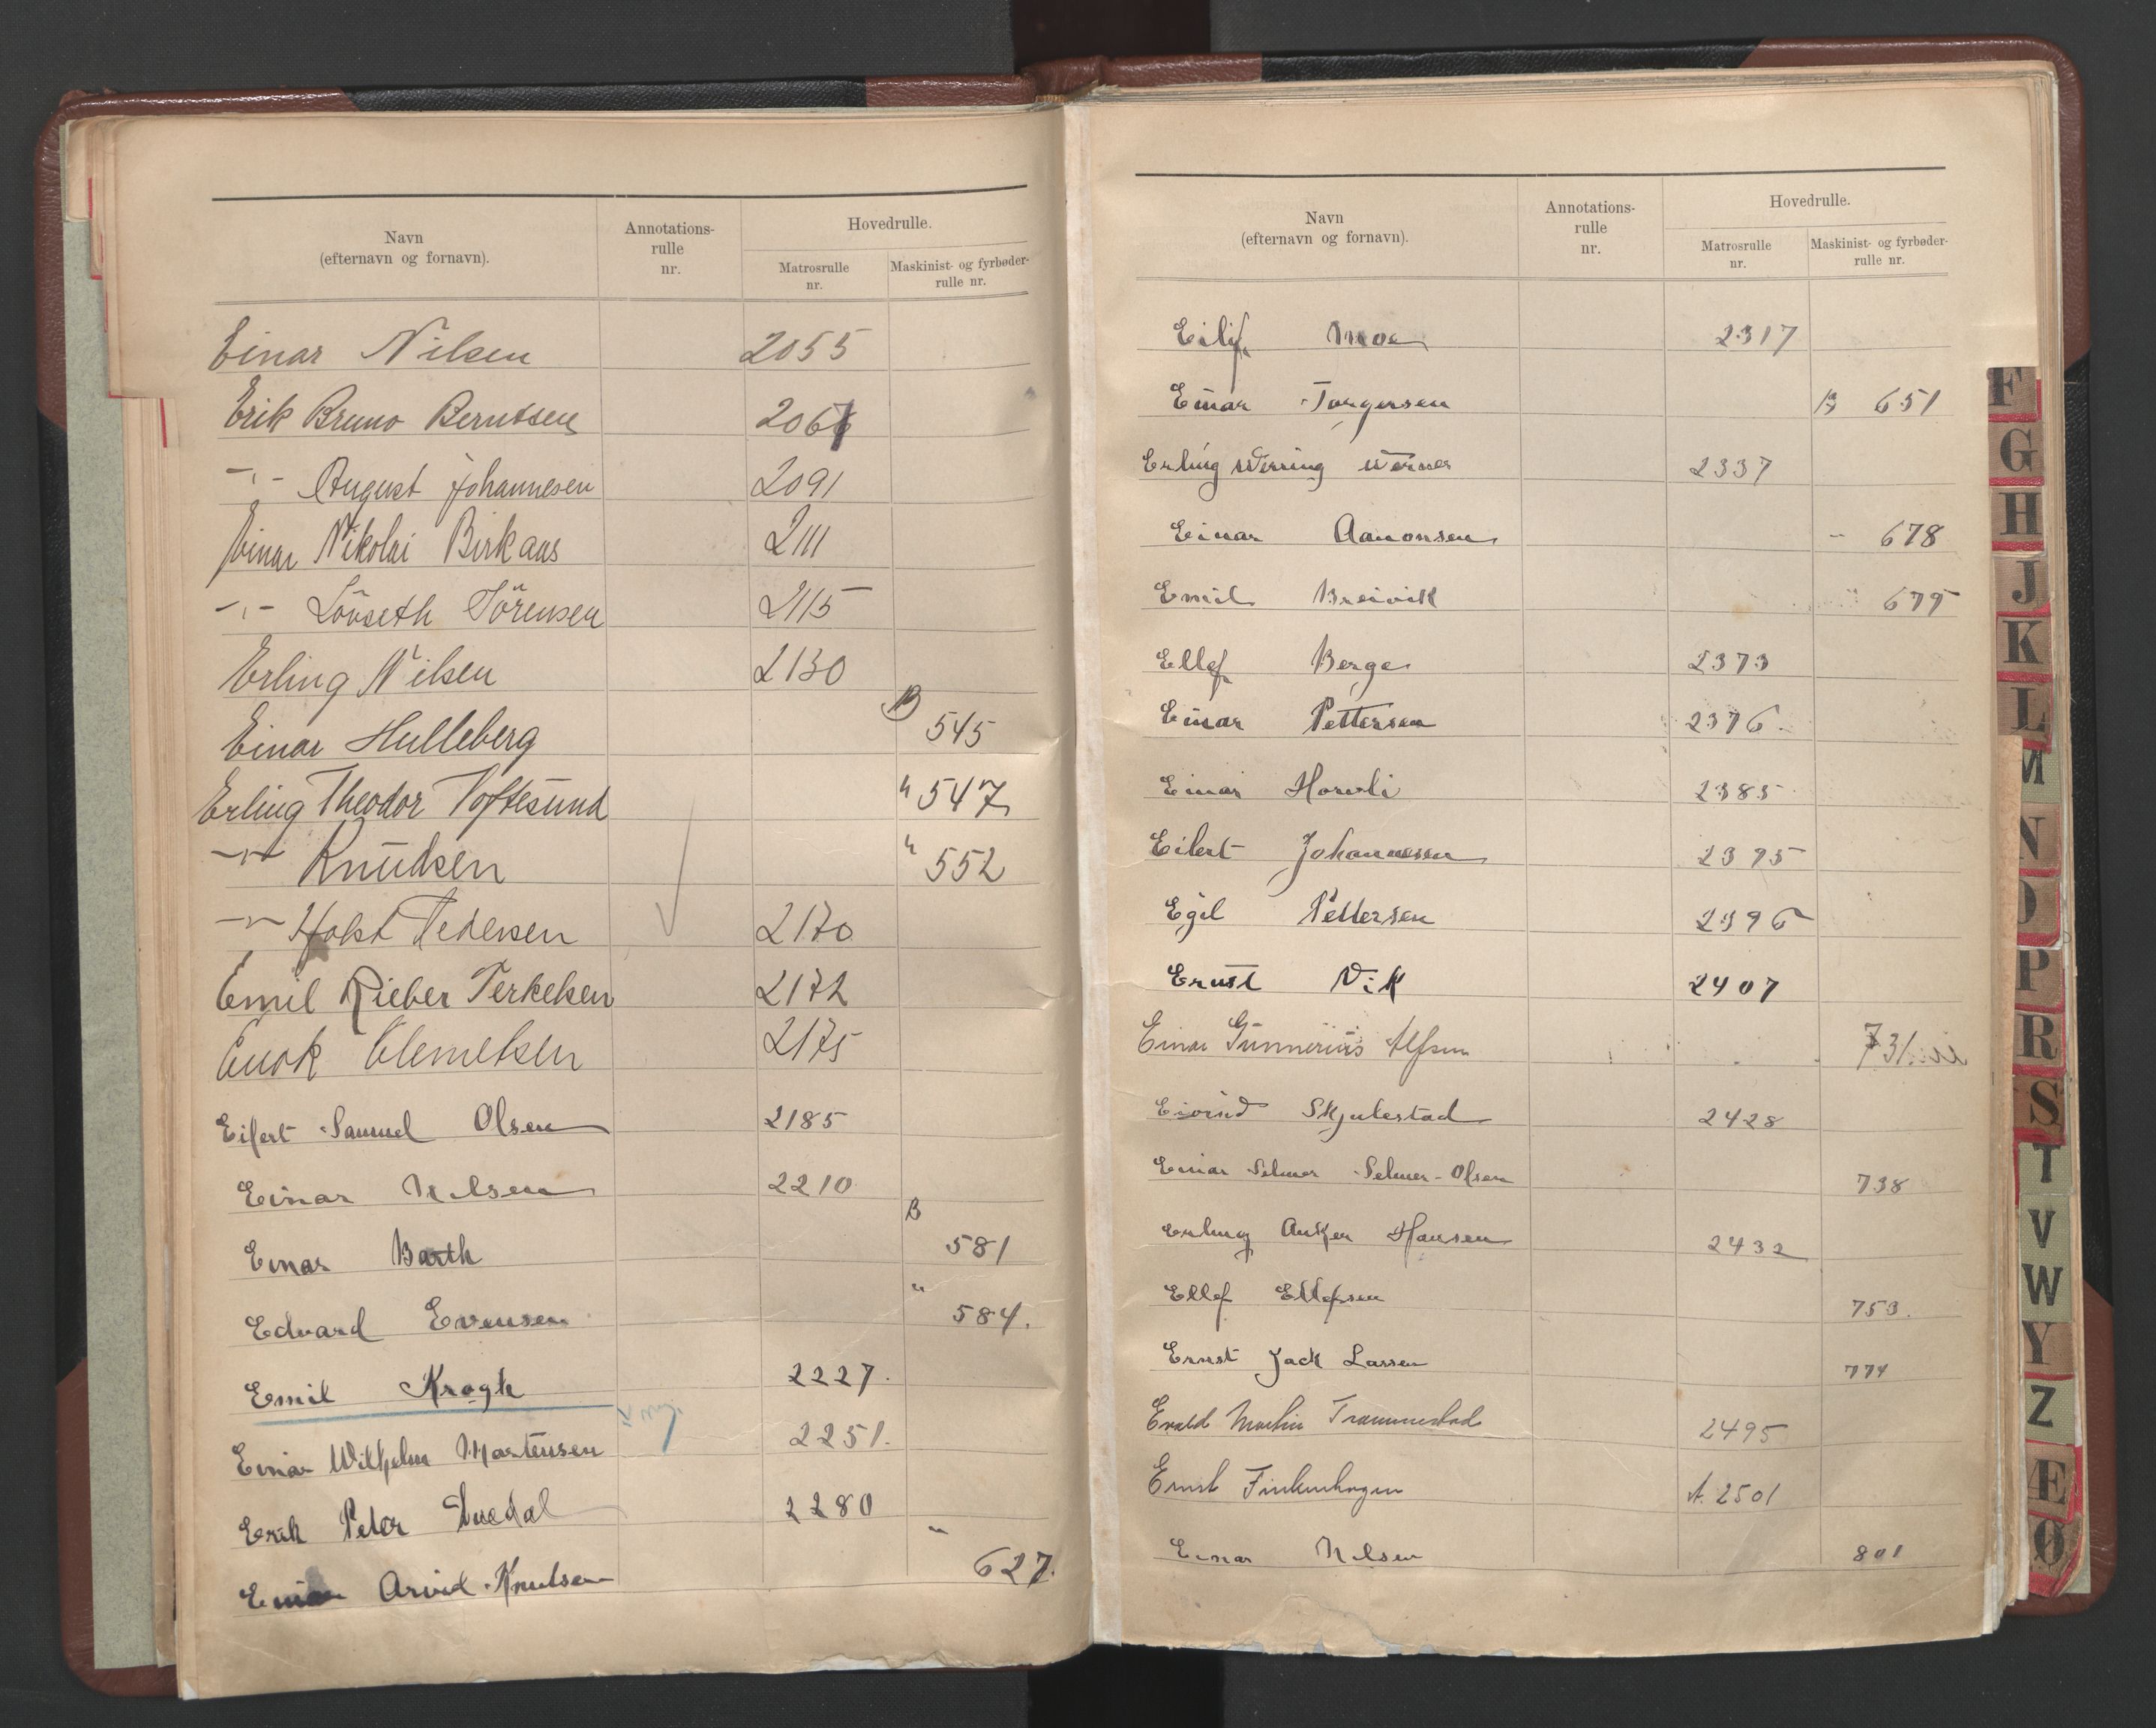 Navn
(efternavn og fornavn).
Annotations-
rulle
nr.
Hovedrulle.
Matrosrulle
nr.
Maskinist- og fyrbøder-
rulle nr.
Einar Nilsen 2055
Erik Bruno Berntsen 2067
-"- August Johannesen 2091
Einar Nikolai Birkaas 2111
-"- Lövseth Sörensen 2115
Erling Nilsen 2130
Einar Hulleberg B 545
Erling Theodor Toftesund " 547
-"- Knudsen " 552
-"- Holst Pedersen 2170
Emil Rieber Terkelsen 2172
Enok Clemetsen 2175
Eilert Samuel Olsen 2185
Einar Nilsen 2210
Einar Barth B 581
Edvard Evensen " 584.
Emil Krogh 2227.
Einar Wilhelm Mortensen 2251.
Erik Peter Duedal 2280
Einar Arvid Knutsen " 627.
Navn
(efternavn og fornavn).
Annotations-
rulle
nr.
Hovedrulle.
Matrosrulle
nr.
Maskinist- og fyrbøder-
rulle nr.
Eilif Moe 2317
Einar Torgersen B 651
Erling Werring Werner 2337
Einar Aanonsen - 678
Emil Breivik " 679
Ellef Berge 2373
Einar Pettersen 2376.
Einar Horvli 2385
Eilert Johannessen 2395
Egil Pettersen 2396
Ernst Vik 2407
Einar Gunnerius Alfsen 731
Eivind Skjulestad 2428
Einar Selmer Selmer-Olsen 738
Erling Anker Hansen 2432
Ellef Ellefsen 753.
Ernst Jack Larsen 774
Evald Martin Trammestad 2495
Ernst Finkenhagen A. 2501
Einar Nilsen 801
F
G
H
J
K
L
M
N
O
P
R
S
T
V
W
Y
Z
Æ
Ø